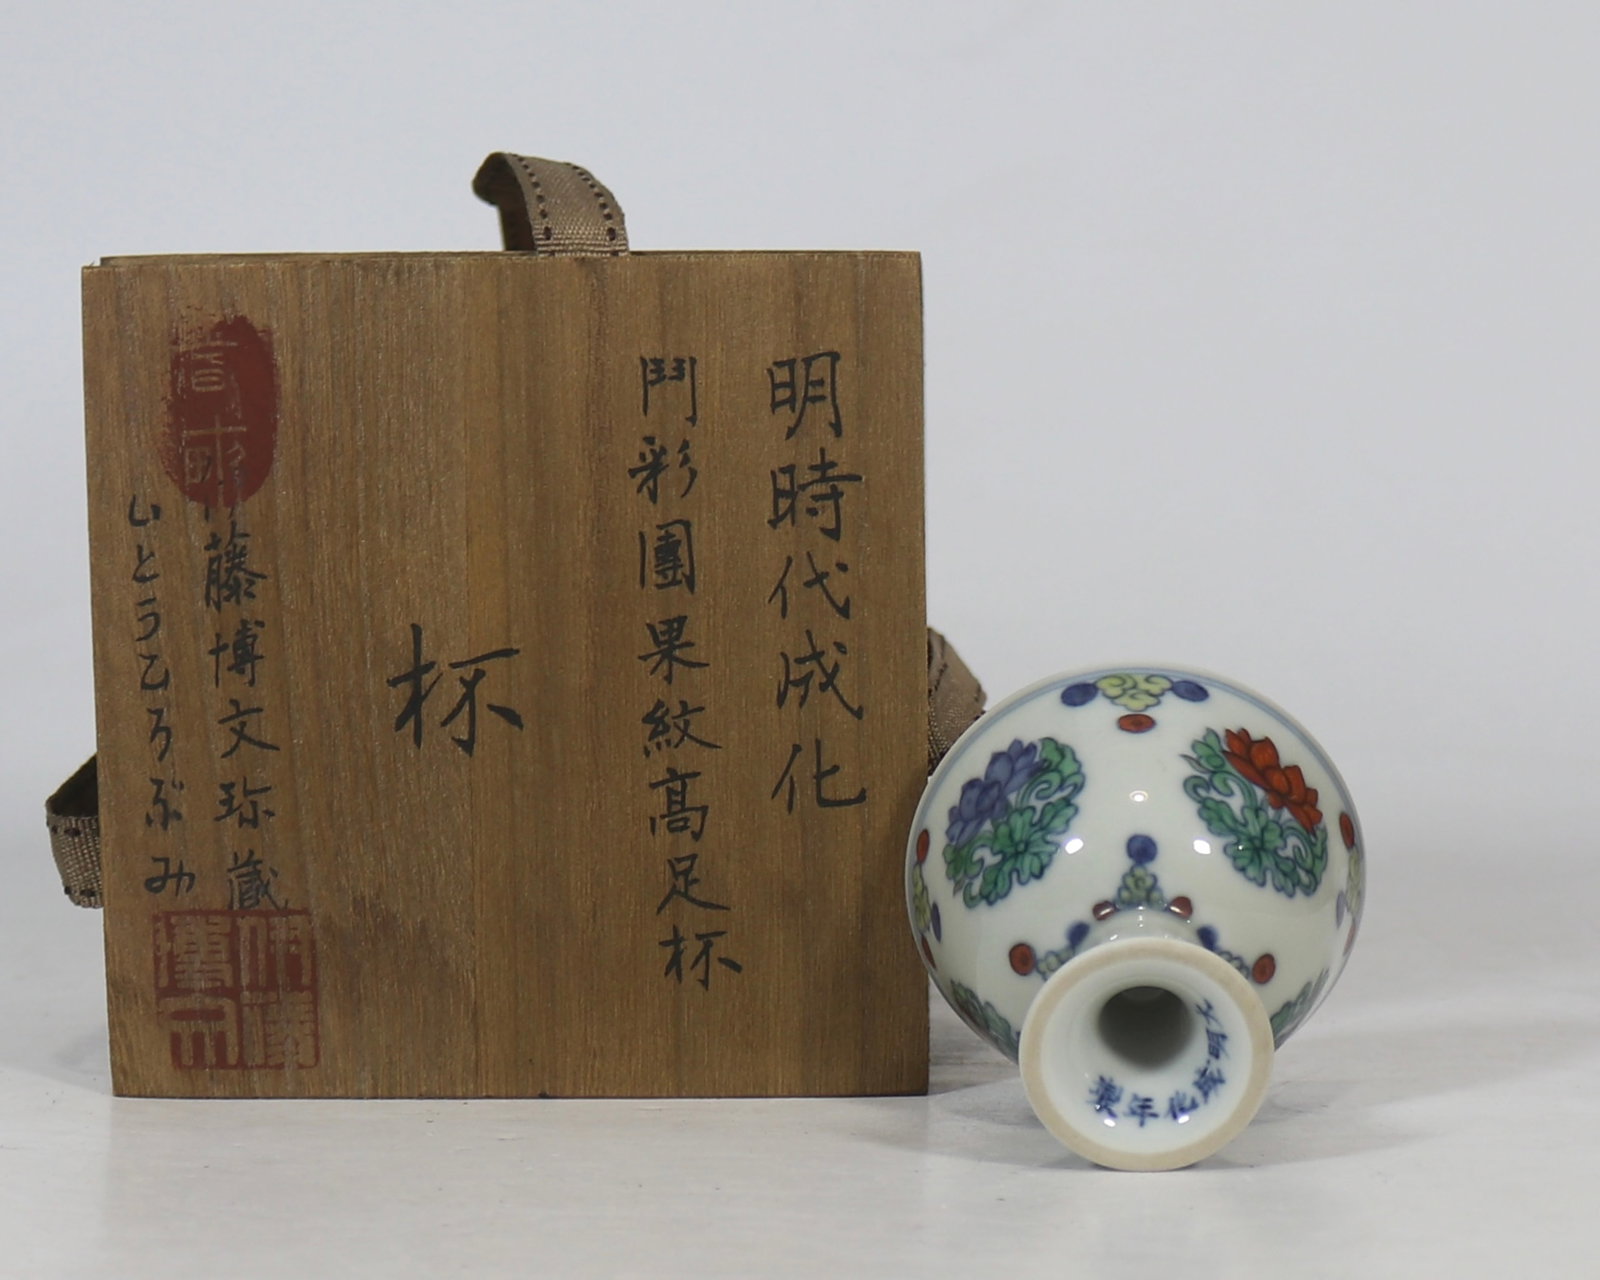 明時代成化
鬥彩團果紋高足杯
杯
藤博文珎蔵
いとうひろぶみ
伊藤博文
大明成化年製